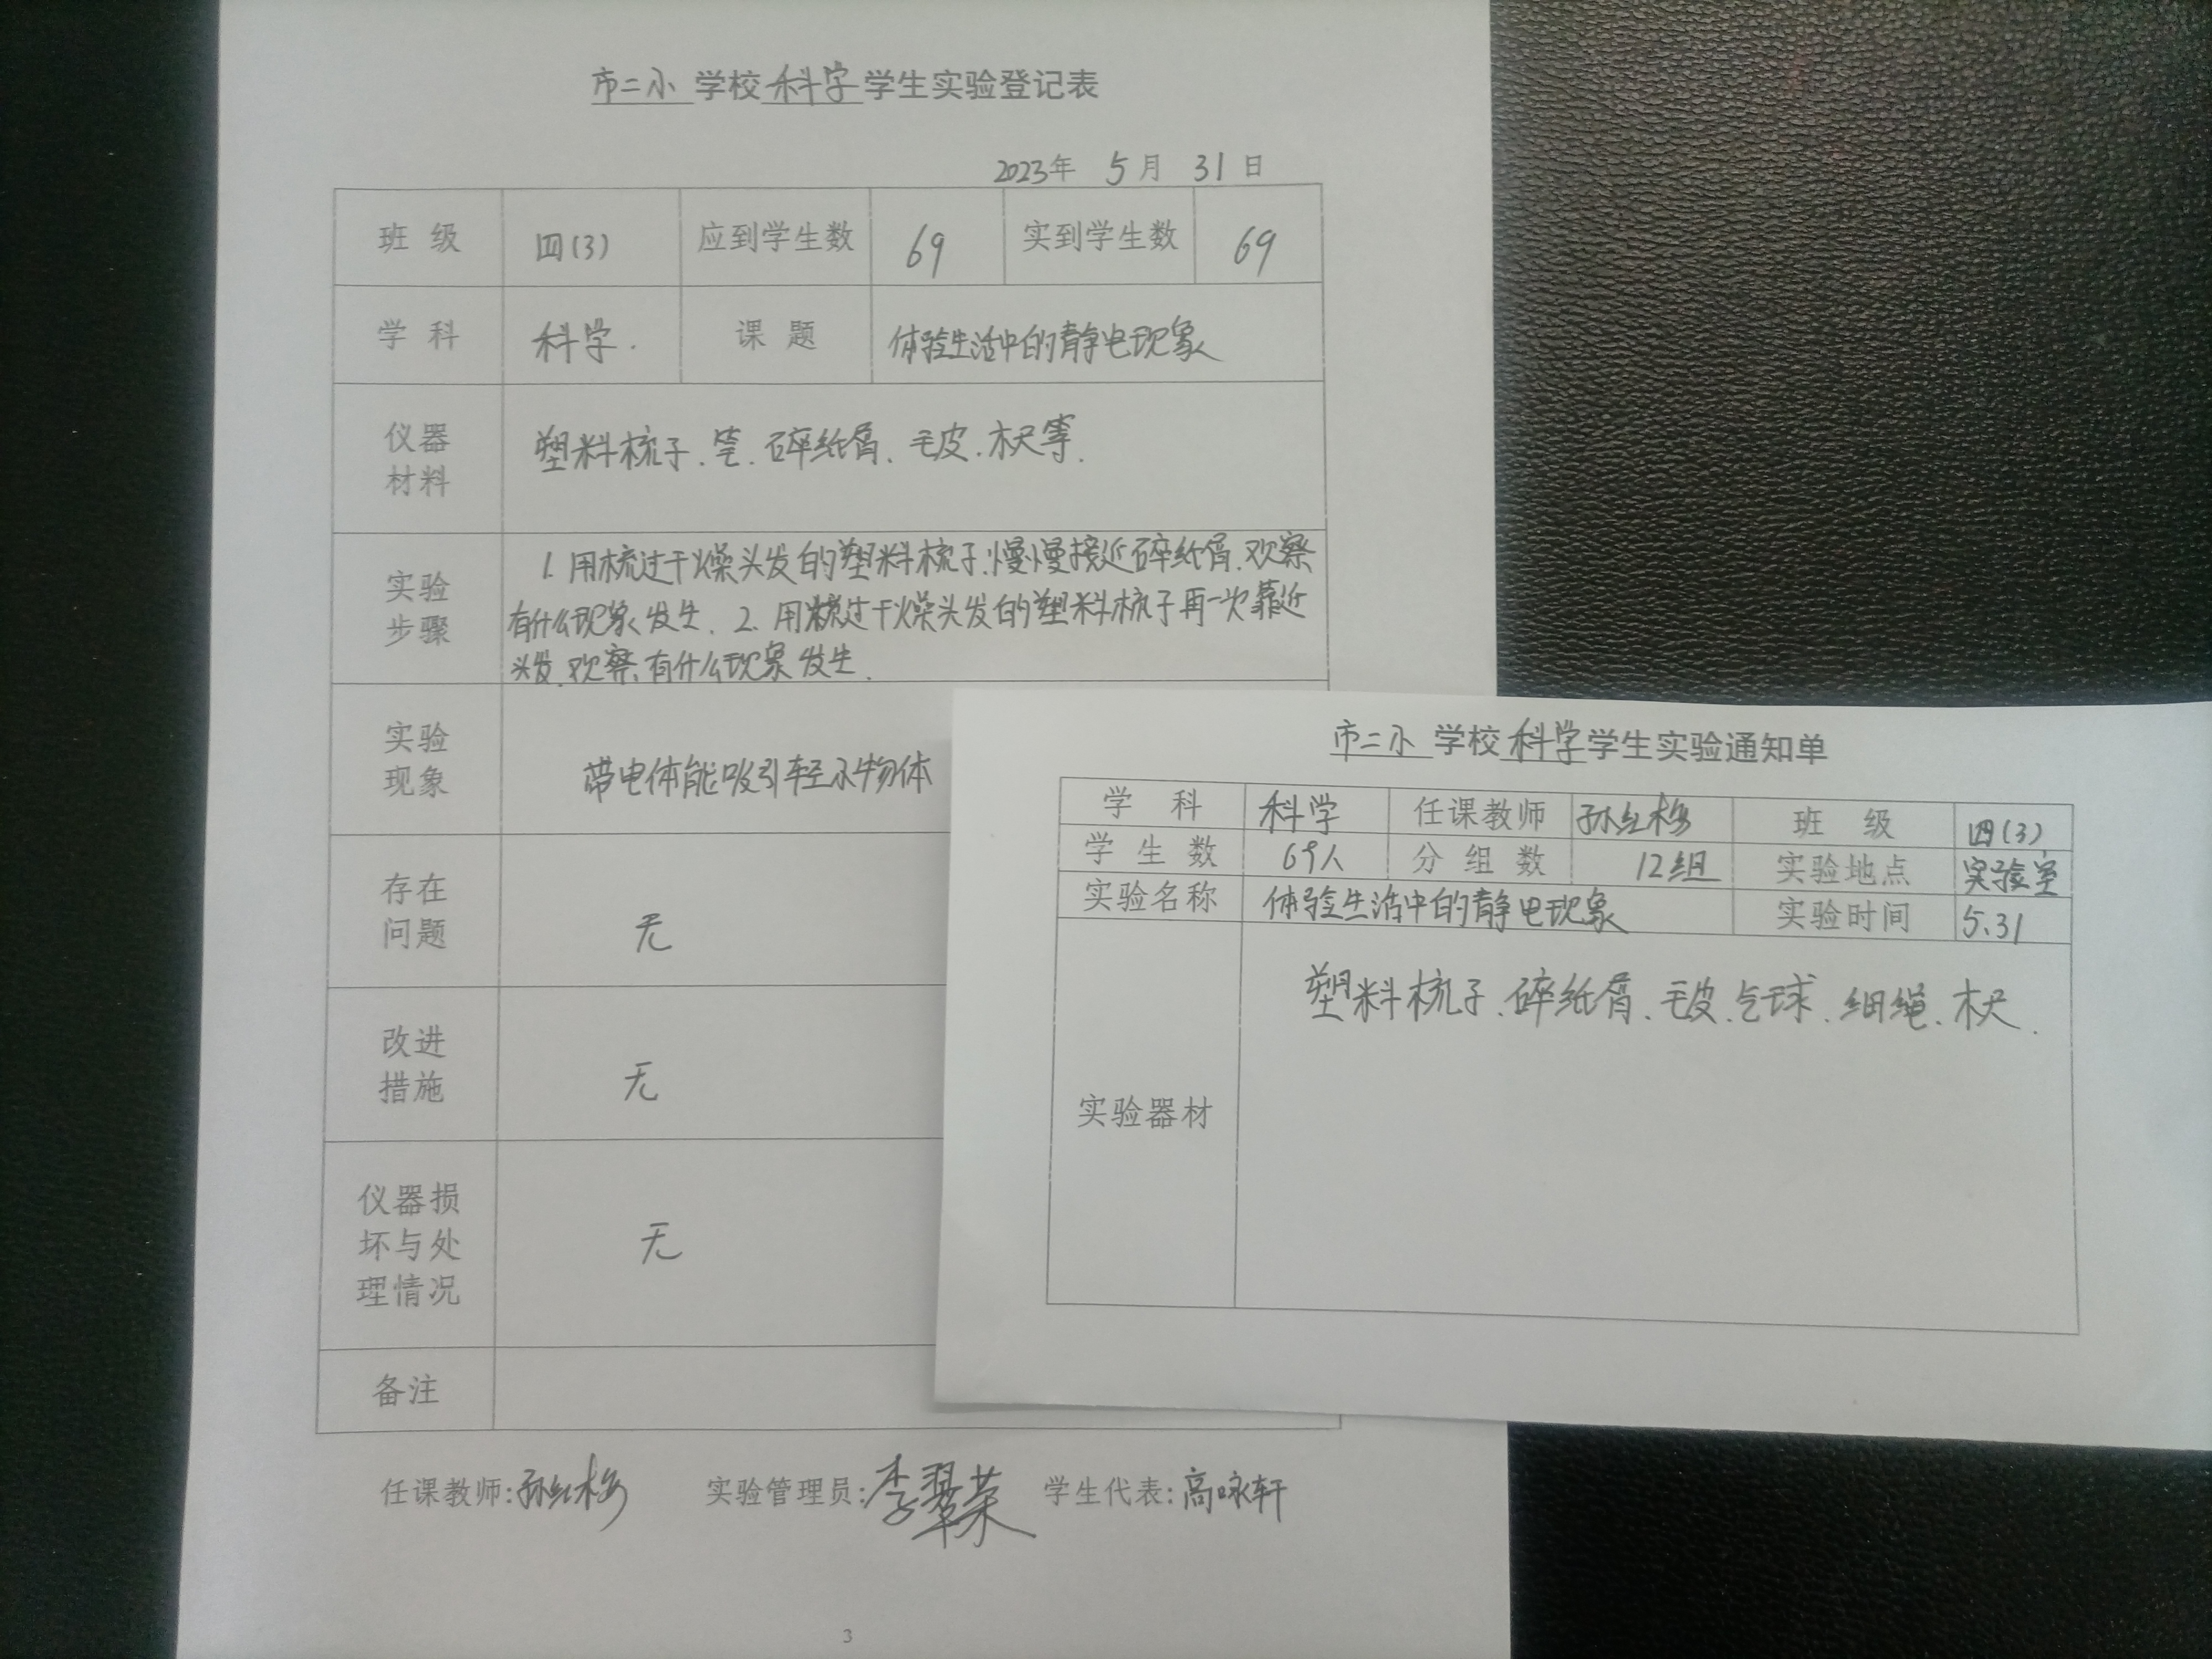 市二小 学校 科学 学生实验登记表
2023年 5月 31日
班 级 四(3) 应到学生数 69 实到学生数 69
学 科 科学. 课 题 体验生活中的静电现象
仪器
材料
塑料梳子、笔、碎纸屑、毛皮、木尺等.
实验
步骤
1. 用梳过干燥头发的塑料梳子,慢慢接近碎纸屑.观察
有什么现象发生. 2. 用梳过干燥头发的塑料梳子再一次靠近
头发,观察,有什么现象发生.
实验
现象
带电体能吸引轻小物体
存在
问题
无
改进
措施
无
仪器损
坏与处
理情况
无
备注
任课教师:孙红梅 实验管理员:李翠荣 学生代表:高咏轩
3
市二小 学校 科学 学生实验通知单
学 科 科学 任课教师 孙红梅 班 级 四(3)
学 生 数 69人 分 组 数 12组 实验地点 实验室
实验名称 体验生活中的静电现象 实验时间 5.31
实验器材
塑料梳子、碎纸屑、毛皮、气球、细绳、木尺.